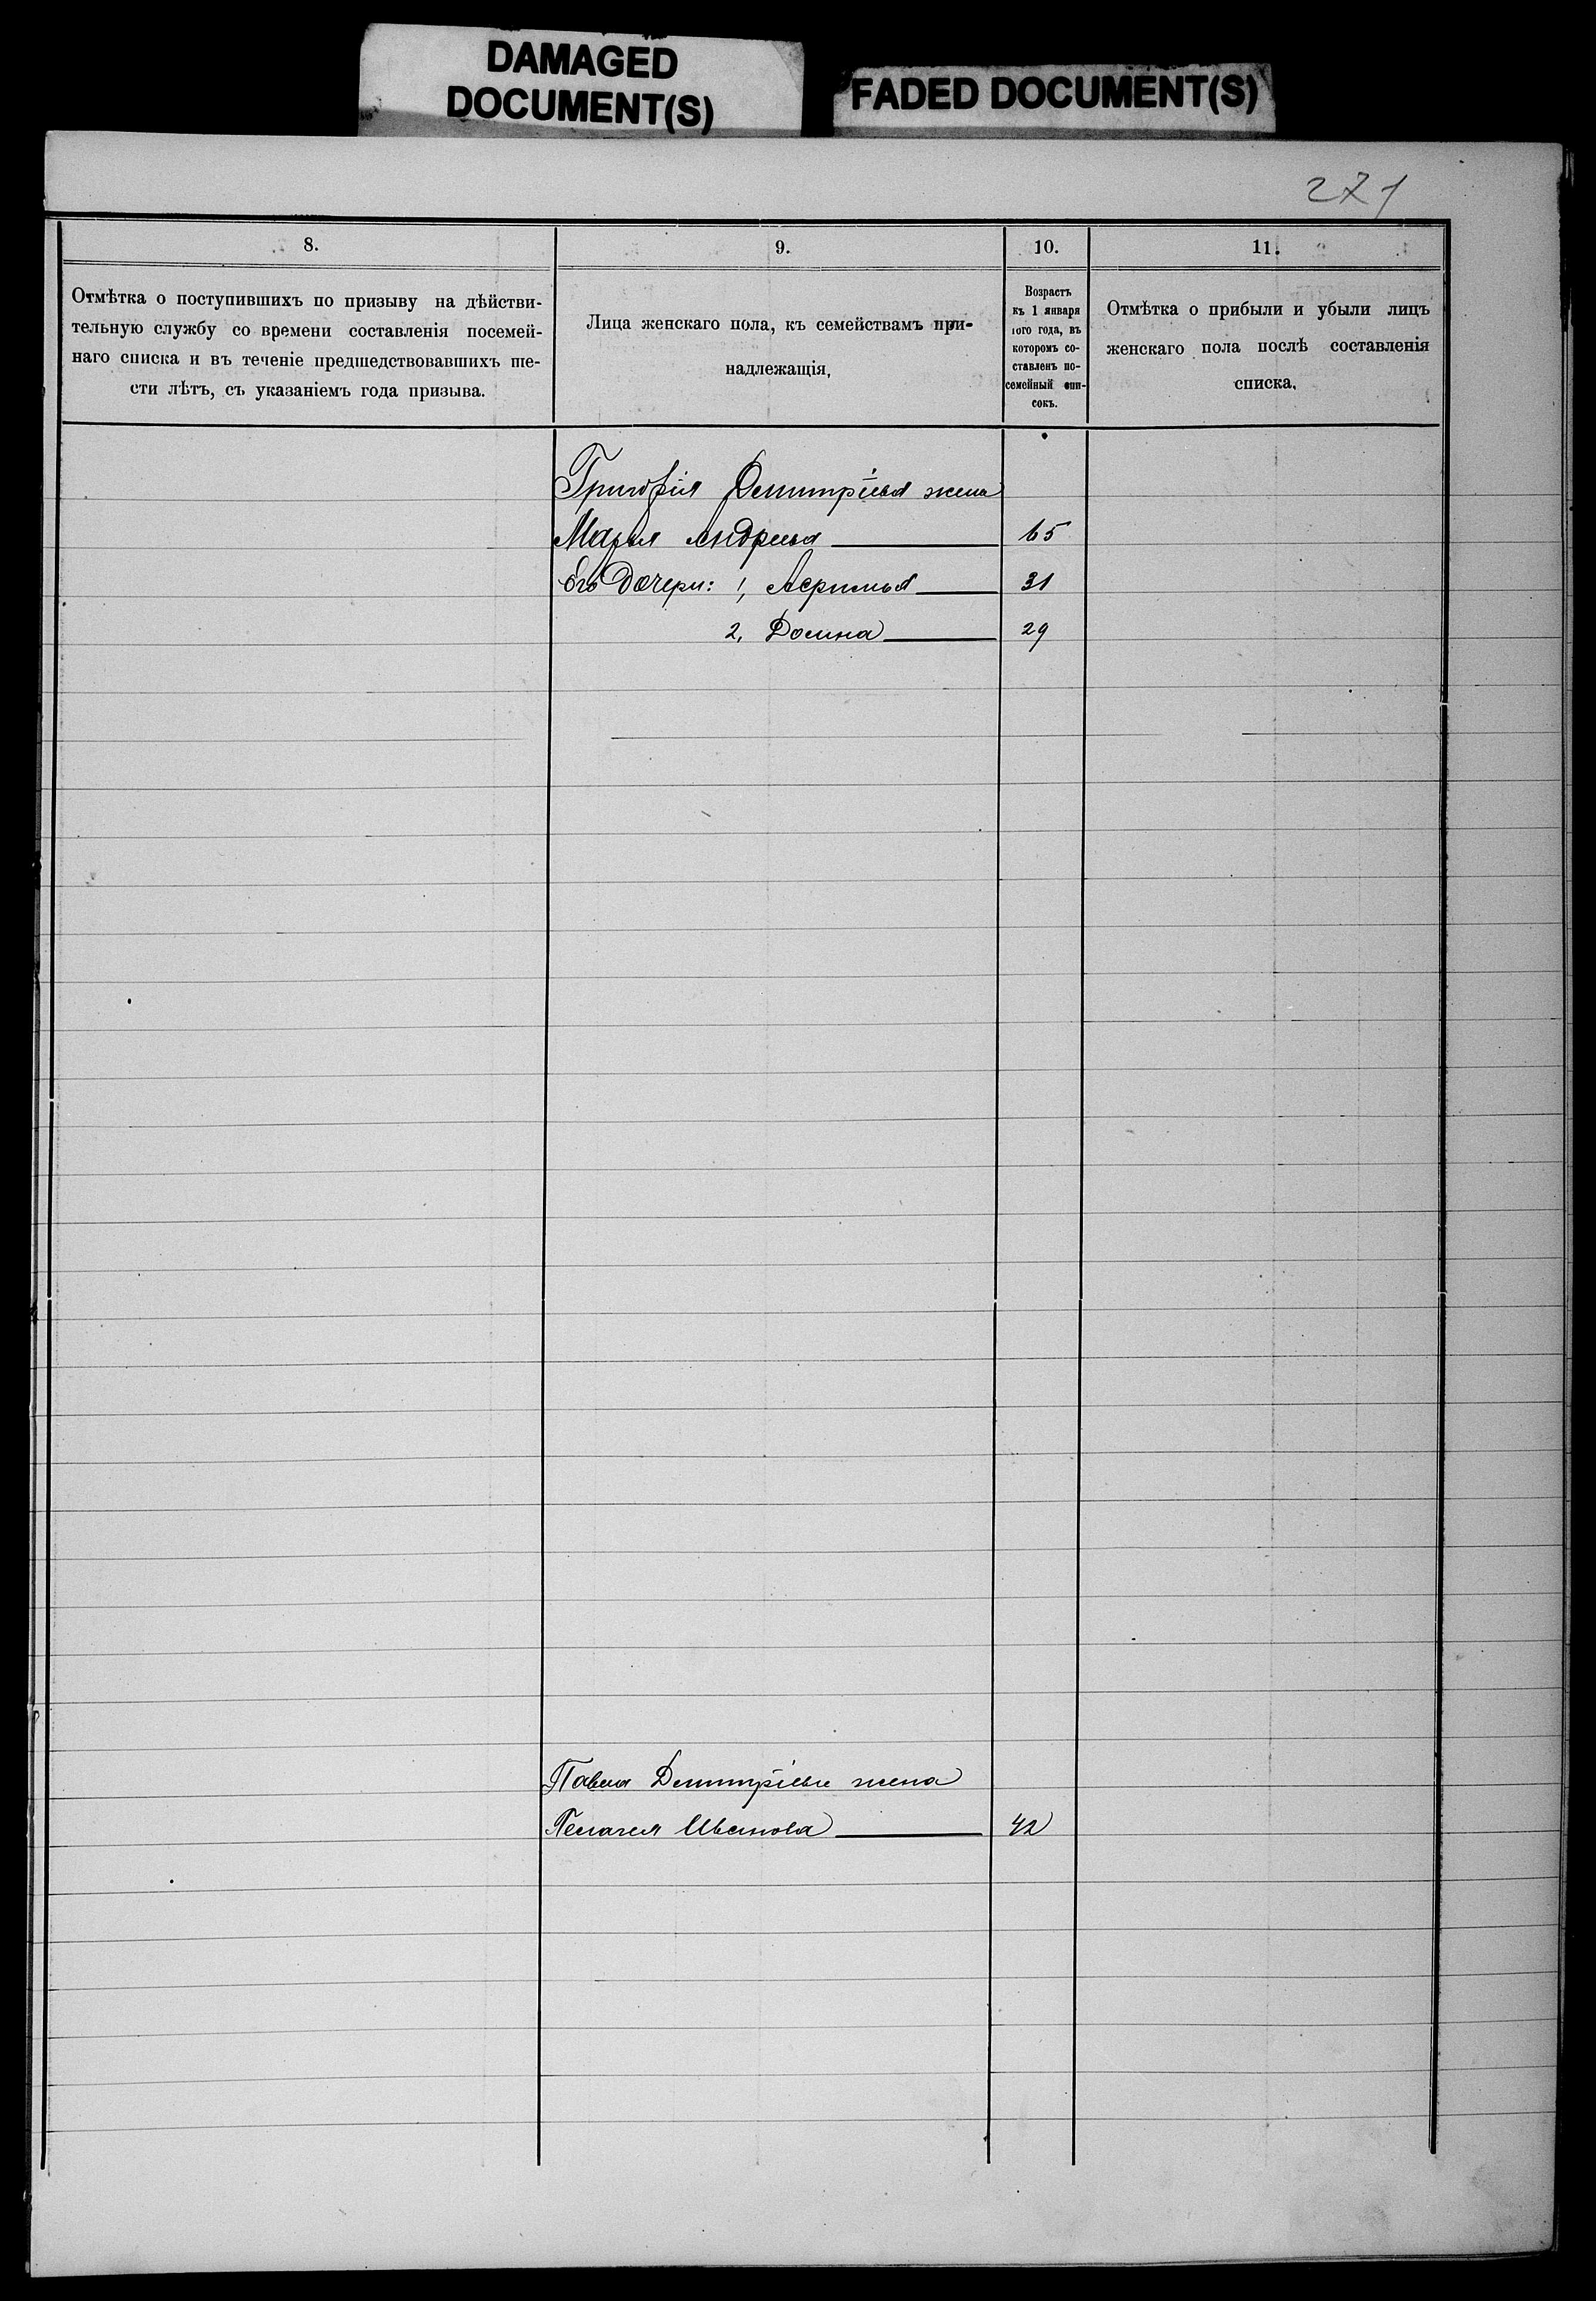 DAMAGED
DOCUMENT(S)
FADED DOCUMENT(S)
271
8.
9.
10.
11.
Отмѣтка о поступившихъ по призыву на дѣйстви-
тельную службу со времени составленія посемей-
наго списка и въ теченіе предшедствовавшихъ ше-
сти лѣтъ, съ указаніемъ года призыва.
Лица женскаго пола, къ семействамъ при-
надлежащія,
Возрастъ
къ 1 января
того года, въ
которомъ со-
ставленъ по-
семейный спи-
сокъ.
Отмѣтка о прибыли и убыли лицъ
женскаго пола послѣ составленія
списка.
Григорія Демитріева жена
Марья Андреева 65
Его дочери: 1, 31
2, Домна 29
Павла Демитріева жена
Пелагея Иванова 42